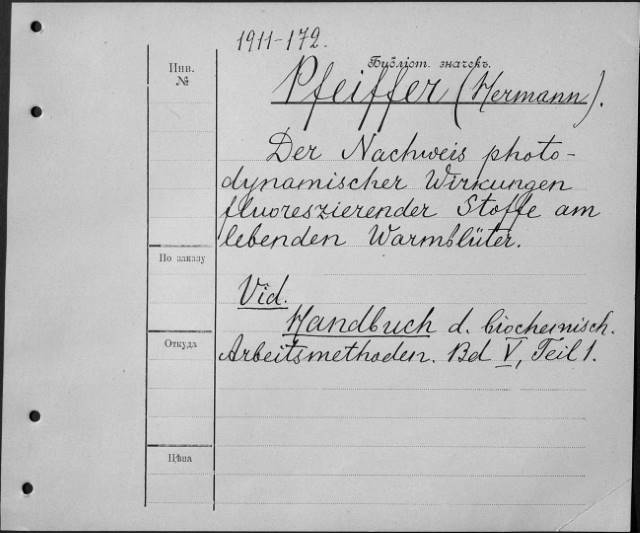 1911-172.
Инв.
№
Библіот. значекъ.
Pfeiffer (Hermann).
Der Nachweis photo-
dynamischer Wirkungen
fluoreszierender Stoffe am
lebenden Warmblüter.
По заказу
Vid.
Handbuch d. biochemisch.
Откуда
Arbeitsmethoden. Bd V, Teil 1.
Цѣна